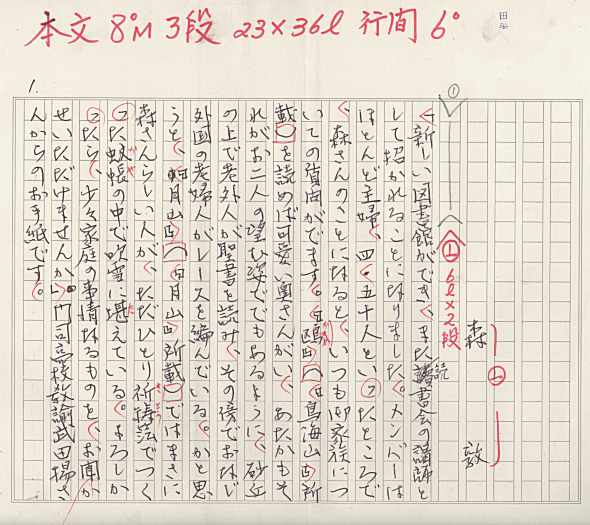 本文8ºM 3段 23×36ℓ 行間6º
田
1.
①
上 6ℓ×2段
森 敦
上
「新しい図書館ができ、また讀書会の講師と
読
して招かれることになりました。メンバーは
ほとんど主婦、四・五十人といったところで
、森さんのことになると、いつも御家族につ
いての質問がでます。『鷗』(『鳥海山』所
かもめ
載)を読めば可愛い奥さんがい、あたかもそ
れがお二人の望む姿ででもあるように、砂丘
の上で老外人が聖書を読み、その傍でおなじ
外国の老婦人がレースを編んでいる。かと思
うと、『月山』(『月山』所載)ではまさに
森さんらしい人が、ただひとり祈禱簿でつく
きとう
った蚊帳の中で吹雪に堪えている。よろしか
かや
た
ったら、少々家庭の事情なるものを、お聞か
せいただけませんか」門司高校教諭武田揚さ
んからのお手紙です。